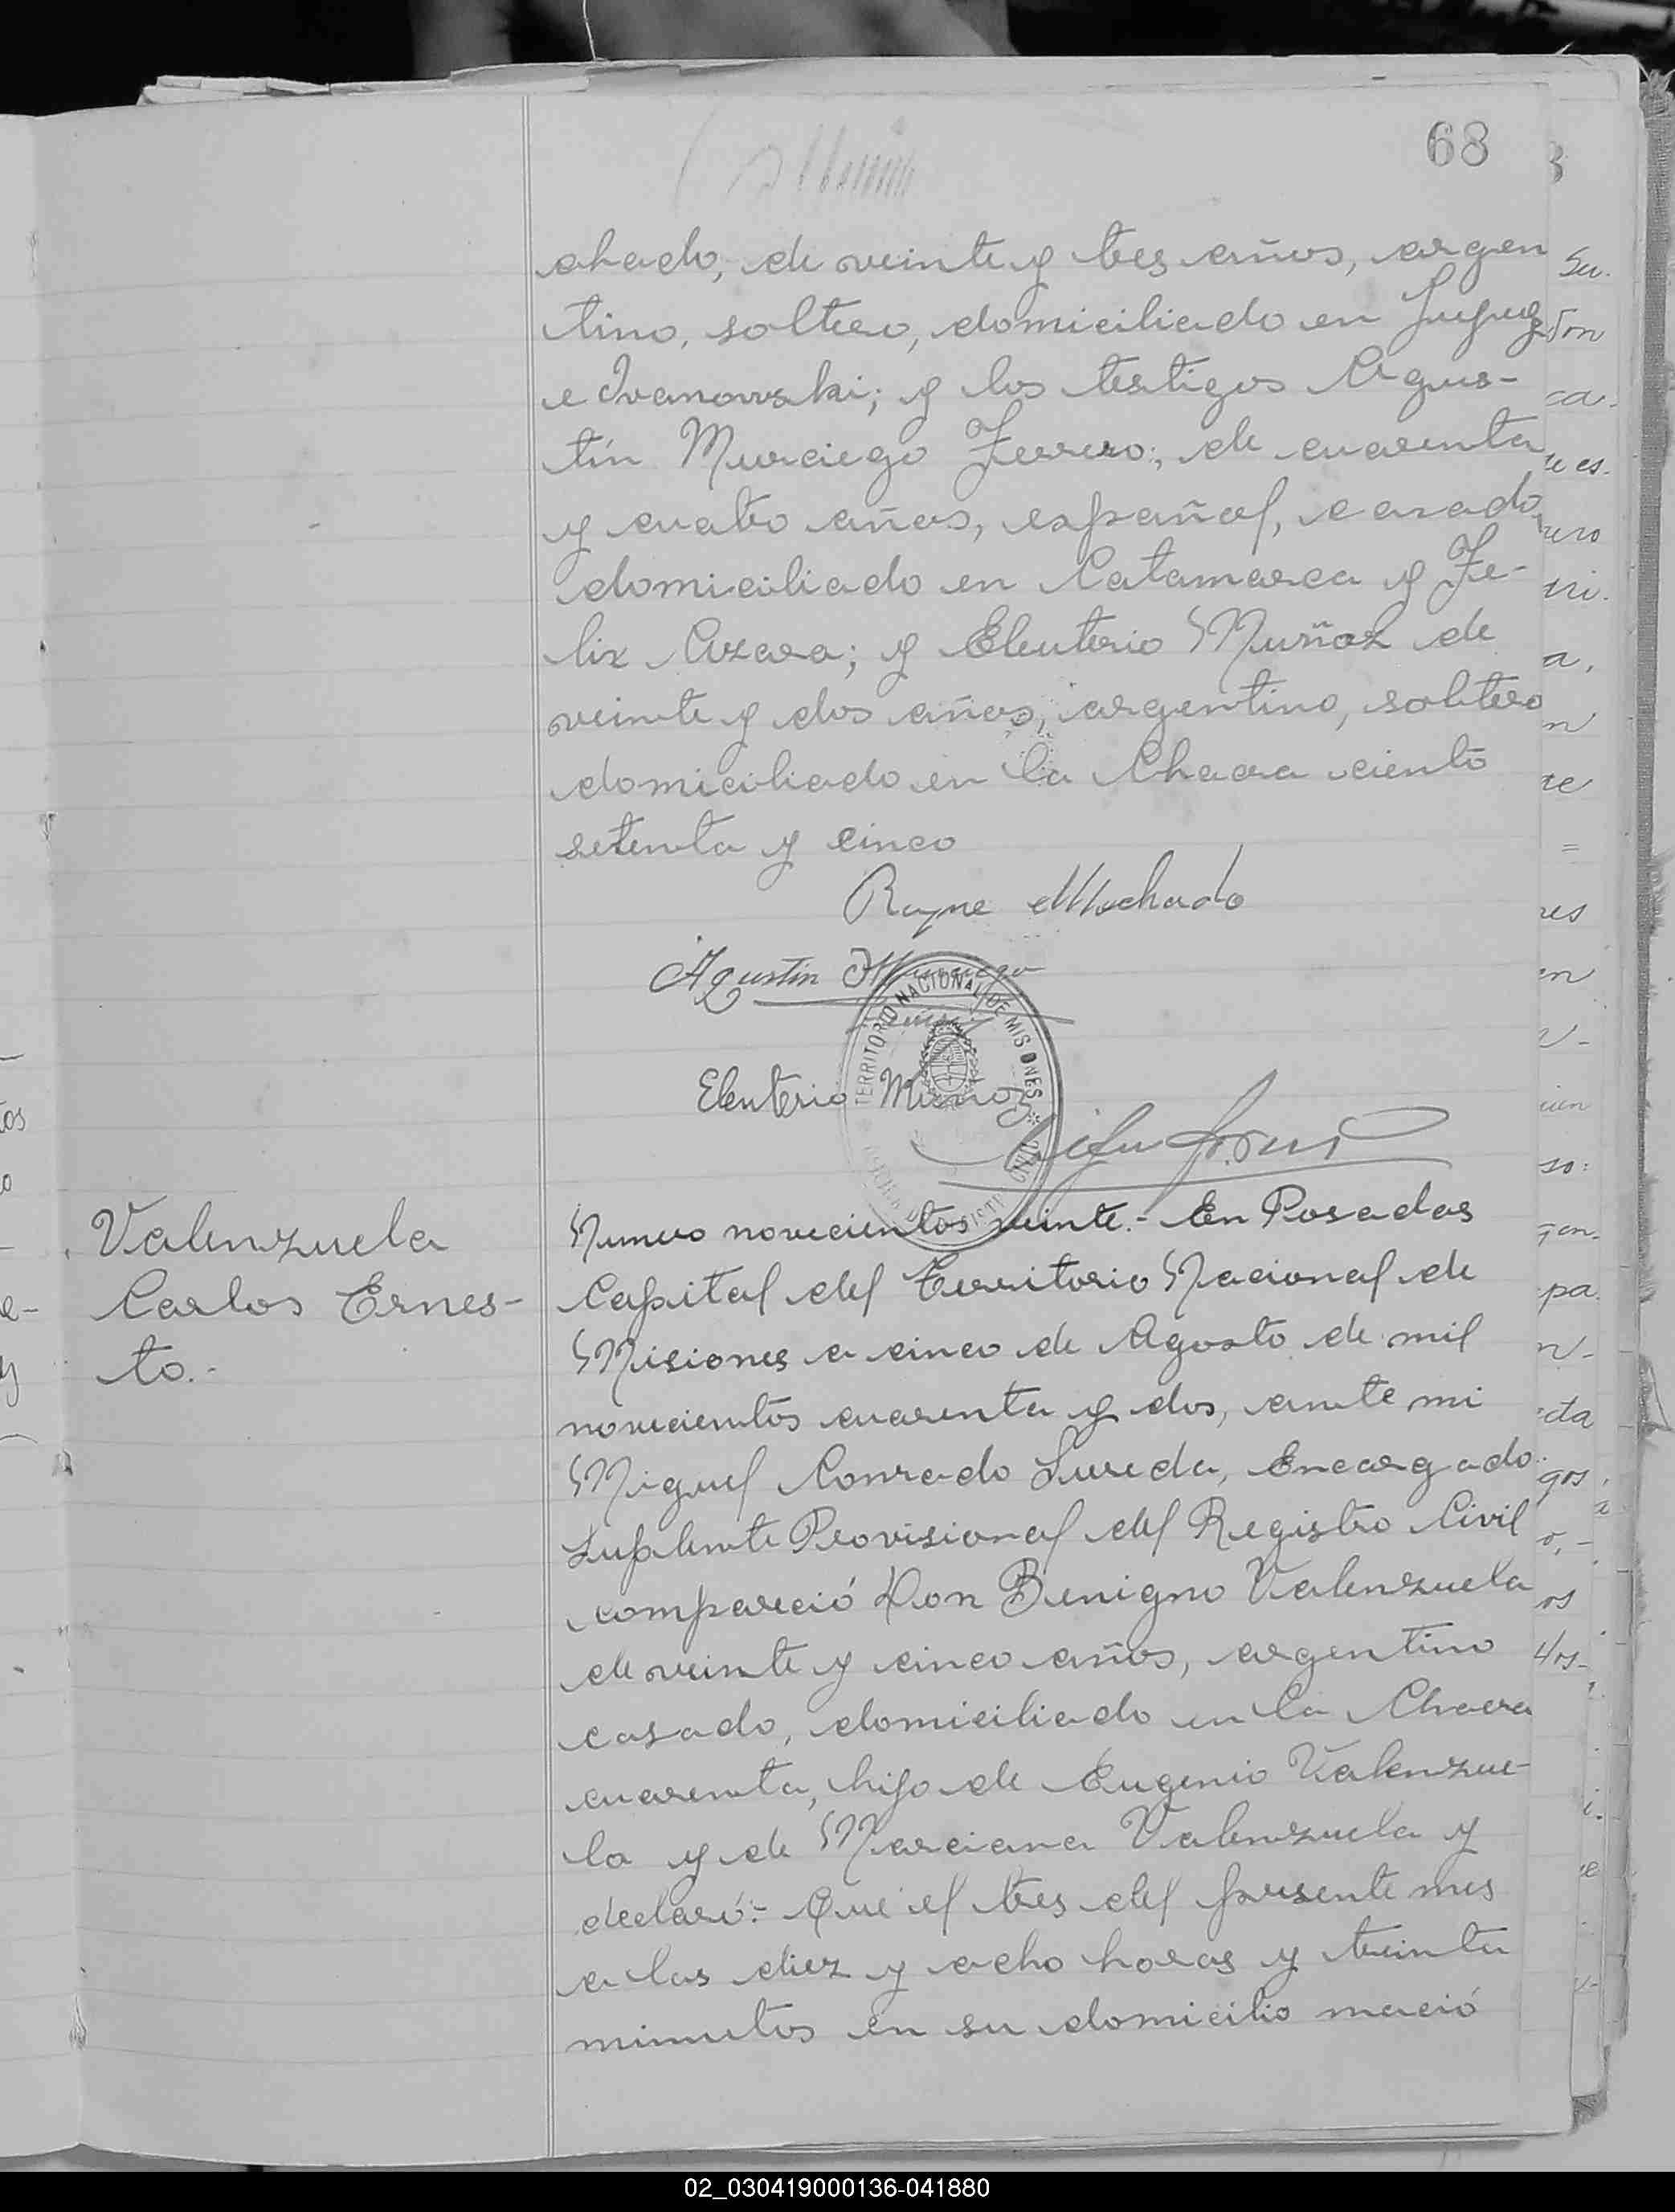 68
chado, de veinte y tres años, argen
tino, soltero, domiciliado en Jujuy
e Ivanowski; y los testigos Agus-
tín Murciego Ferrero, de cuarenta
y cuatro años, español, casado,
domiciliado en Catamarca y Fe-
lix Azara; y Eleuterio Muñoz de
veinte y dos años, argentino, soltero
domiciliado en la Chacra ciento
setenta y cinco
Machado
Agustin Murciego
TERRITORIO NACIONAL DE MISIONES
Eleuterio Muñoz
Valenzuela
Carlos Ernes-
to.-
Numero novecientos veinte.- En Posadas
Capital del Territorio Nacional de
Misiones a cinco de Agosto de mil
novecientos cuarenta y dos, ante mi
Miguel Conrado Sureda, Encargado
Suplente Provisional del Registro Civil
compareció Don Benigno Valenzuela
de veinte y cinco años, argentino
casado, domiciliado en la Chacra
cuarenta, hijo de Eugenio Valenzue-
la y de Marciana Valenzuela y
declaró:- Que el tres del presente mes
a las diez y ocho horas y treinta
minutos en su domicilio nació
02_030419000136-041880